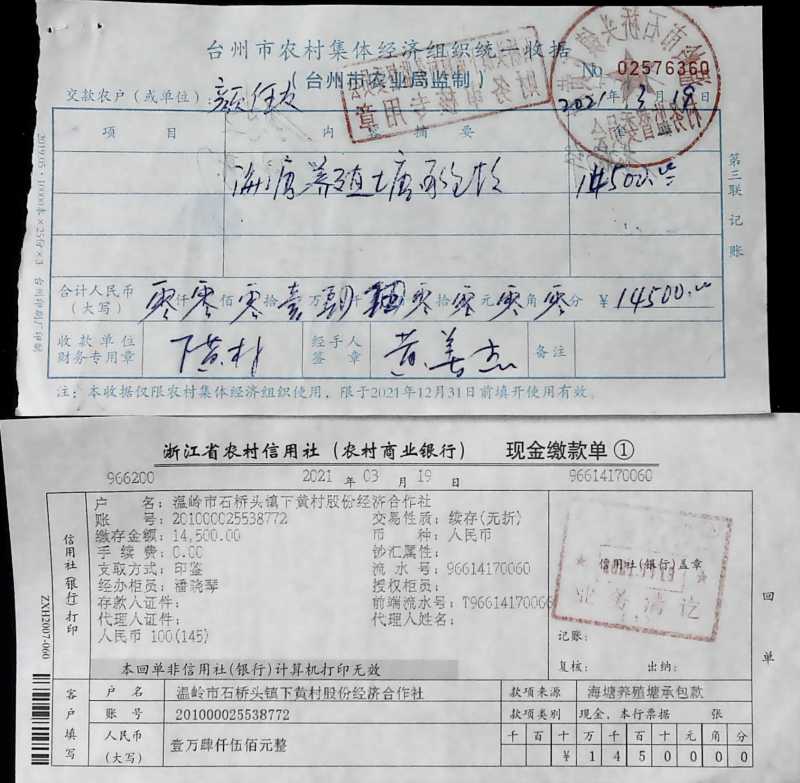 台州市农村集体经济组织统一收据
(台州市农业局监制)
No 02576360
交款农户(或单位):
2021年3月19日
项 目 内 容 摘 要
海塘养殖土塘承包款
14500.00
合计人民币(大写) 零仟零佰零拾壹万肆仟伍佰零拾零元零角零分 ¥14500.00
收款单位财务专用章 下黄村
经手人签章 黄善杰
备注
注:本收据仅限农村集体经济组织使用,限于2021年12月31日前填开使用有效。
第三联 记账
2019.05·10000本×25份×3 台州印刷厂印制
财务审核专用章
浙江省农村信用社(农村商业银行) 现金缴款单①
966200 2021 年 03 月 19 日 96614170060
户 名:温岭市石桥头镇下黄村股份经济合作社
账 号:201000025538772 交易性质:续存(无折)
缴存金额:14,500.00 币 种:人民币
手 续 费:0.00 钞汇属性:
支取方式:印鉴 流 水 号:96614170060
经办柜员:潘晓琴 授权柜员:
存款人证件: 前端流水号:T96614170066
代理人证件: 代理人姓名:
人民币 100(145)
本回单非信用社(银行)计算机打印无效
信用社(银行)打印
信用社(银行)盖章
业务清讫
记账:
复核: 出纳:
回单
ZXH2007-060
客户填写
户 名 温岭市石桥头镇下黄村股份经济合作社 款项来源 海塘养殖塘承包款
账 号 201000025538772 款项类别 现金、本行票据 张
人民币(大写) 壹万肆仟伍佰元整
千 百 十 万 千 百 十 元 角 分
¥ 1 4 5 0 0 0 0